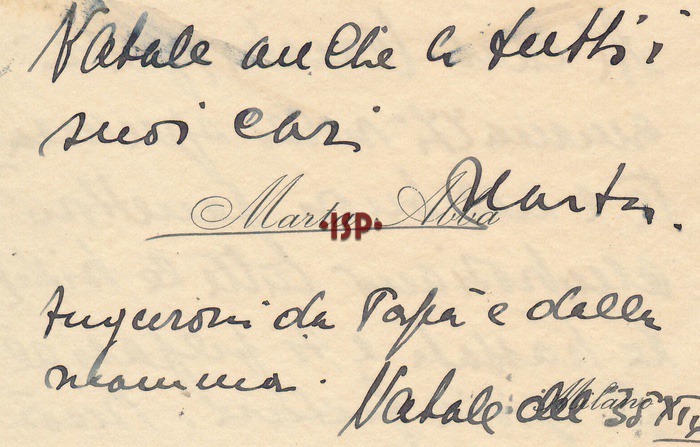 Natale anche a tutti i
suoi cari
Marta.
Marta Abba
•ISP•
Auguroni da Papà e dalla
mamma.
Milano
Natale del 35 XIV